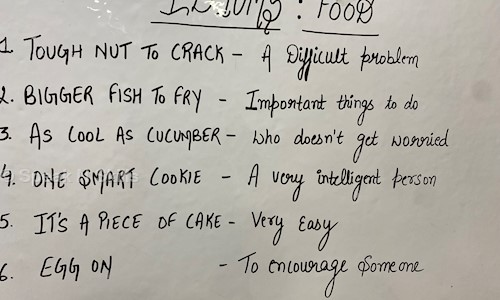 IDIOMS : FOOD
1. TOUGH NUT TO CRACK - A Difficult problem
2. BIGGER FISH TO FRY - Important things to do
3. AS COOL AS CUCUMBER - who doesn't get worried
4. ONE SMART COOKIE - A very intelligent person
5. IT'S A PIECE OF CAKE - Very Easy
6. EGG ON - To encourage someone